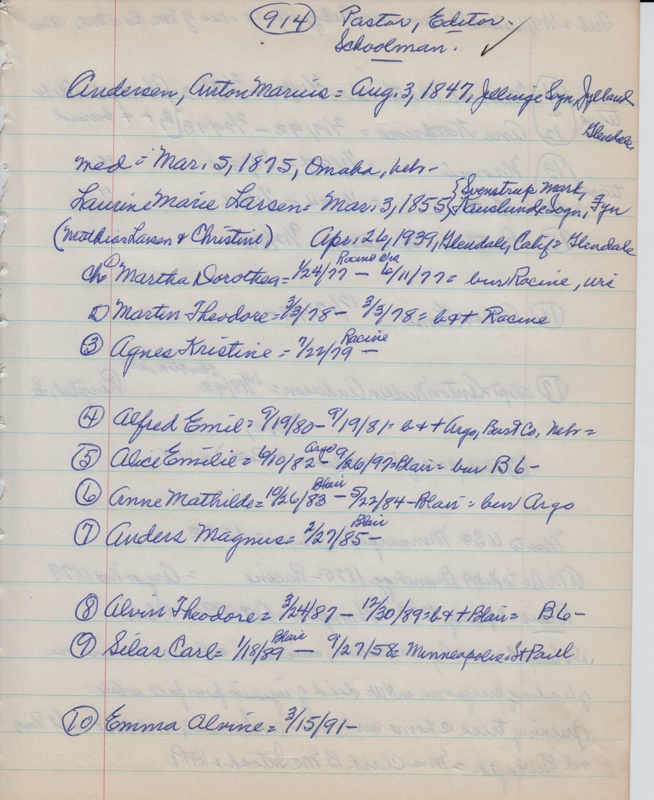 914 Pastor, Editor.
Schoolman. ✓
Andersen, Anton Marius = Aug. 3, 1847, Jellinge Sogn Jylland
Glendale,
med = Mar. 5, 1875, Omaha, Nebr -
Laurine Marie Larsen = Mar. 3, 1855 { Svenstrup Mark,
Kauslunde Sogn, Fyn
(Mathias Larsen & Christine) Apr. 26, 1939, Glendale, Calif = Glendale
ch ① Martha Dorothea = 1/24/77 Racine - 6/11/77 = bur Racine, Wis
② Martin Theodore = 3/3/78 - 3/3/78 = b & + Racine
③ Agnes Kristine = 7/22/79 Racine -
④ Alfred Emil = 9/19/80 - 9/19/81 = b & + Argo, Burt Co, Nebr =
⑤ Alice Emilie = 6/10/82 Argo - 9/26/97 = Blair = bur Bb -
⑥ Anne Mathilde = 10/26/83 Blair - 5/22/84 - Blair = bur Argo
⑦ Anders Magnus = 2/27/85 Blair -
⑧ Alvin Theodore = 3/24/87 - 12/30/89 = b & + Blair = Bb -
⑨ Silas Carl = 1/18/89 Blair - 9/27/58 = Minneapolis = St Paul,
⑩ Emma Alvine = 3/15/91 -